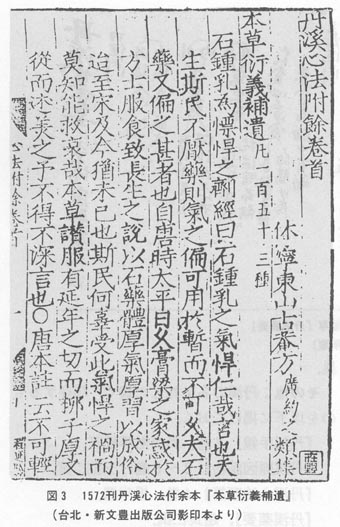 丹溪心法附餘卷首
休寧東山古菴方廣約之類集
本草衍義補遺凡一百五十三種
石鍾乳為慓悍之劑經曰石鍾乳之氣悍仁哉言也天
生斯民不厭藥則氣之偏可用於暫而不可久夫石
藥又偏之甚者也自唐時太平日久膏粱之家惑於
方士服食致長生之說以石藥體厚氣厚習以成俗
迨至宋及今猶未已也斯民何辜受此氣悍之禍而
莫知能救哀哉本草讚服有延年之切而柳子厚又
從而述美之予不得不深言也○唐本註云不可輕
心法付余卷首
一
図3 1572刊丹溪心法付余本『本草衍義補遺』
（台北・新文豊出版公司影印本より）